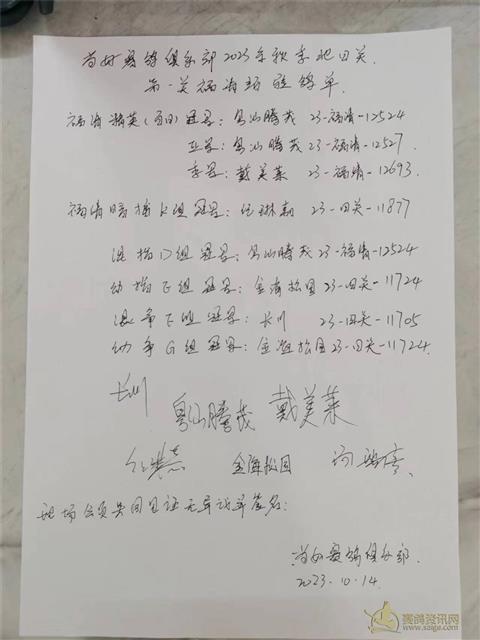 赛鸽俱乐部2023年秋季四关
第一关福清站验鸽单
福清精英(四) 冠军:粤汕腾茂 23-福清-12524
亚军:粤汕腾茂 23-福清-12527
季军:戴美莱 23-福清-12693
福清 K组冠军: 23-四关-11877
混 D组冠军:粤汕腾茂 23-福清-12524
幼 E组冠军:金海松园 23-四关-11724
混争F组冠军:长川 23-四关-11705
幼争G组冠军:金海松园 23-四关-11724
长川 粤汕腾茂 戴美莱
金海松园
现场会员共同见证无异议并签名:
赛鸽俱乐部
2023.10.14.
赛鸽资讯网
www.saige.com